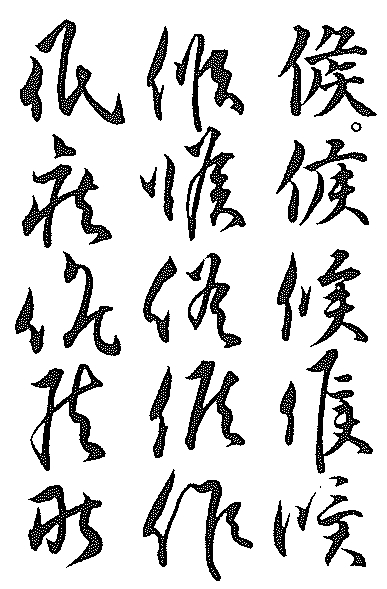 候。候候候候
候候候候候
候候候候候